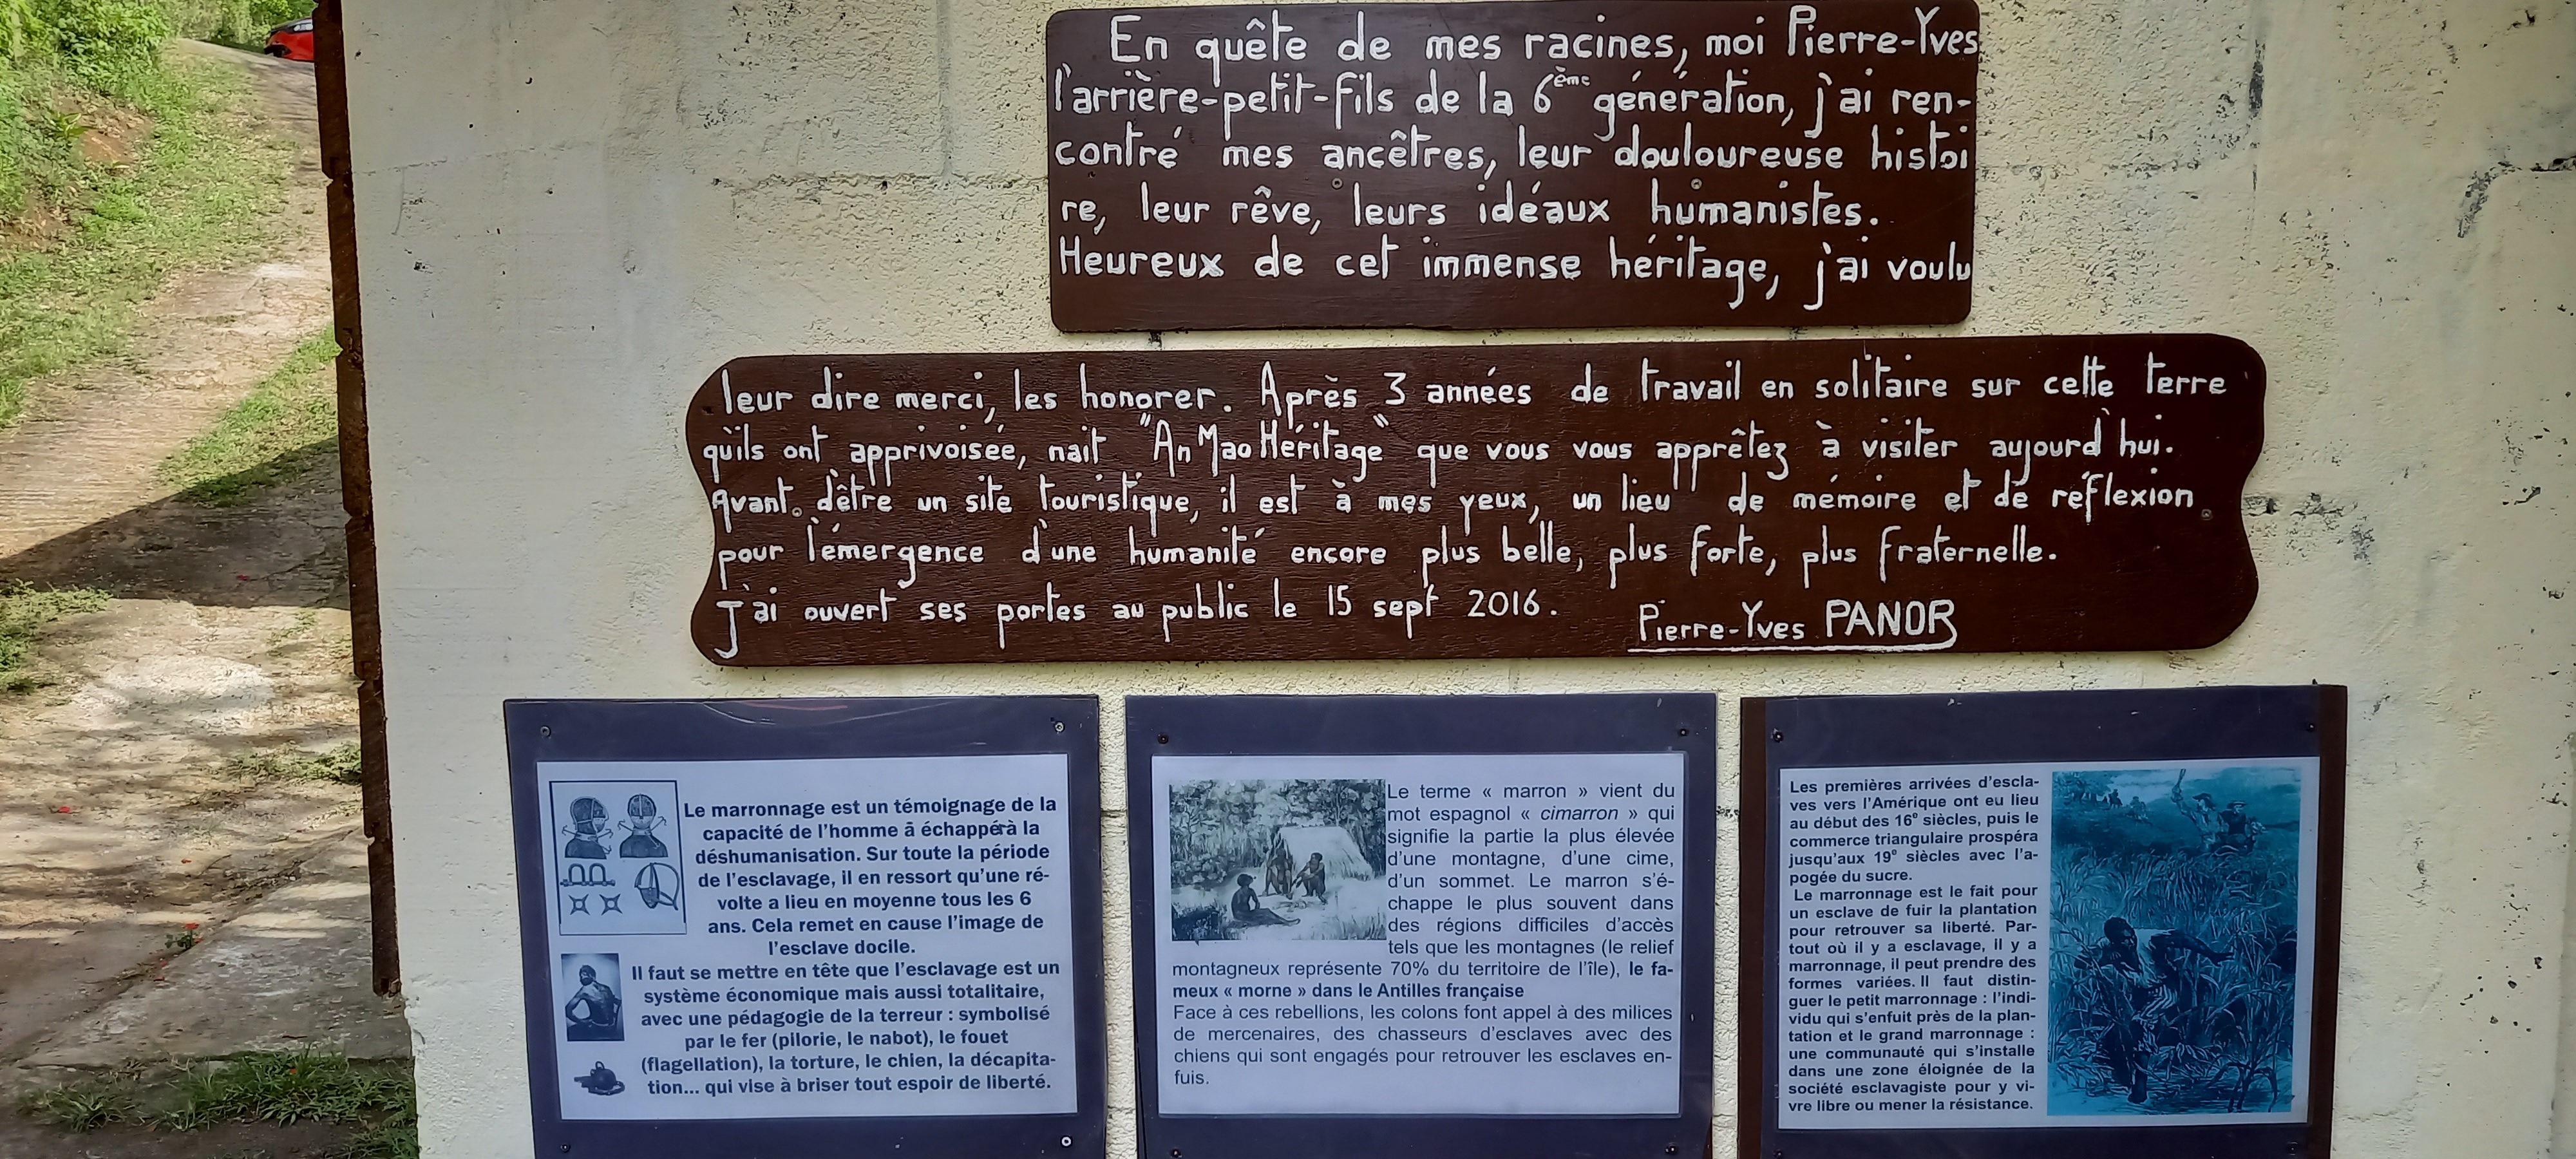 En quête de mes racines, moi Pierre-Yves
l'arrière-petit-fils de la 6ème génération, j'ai ren-
contré mes ancêtres, leur douloureuse histoi
re, leur rêve, leurs idéaux humanistes.
Heureux de cet immense héritage, j'ai voulu
leur dire merci, les honorer. Après 3 années de travail en solitaire sur cette terre
qu'ils ont apprivoisée, nait "An Mao Héritage" que vous vous apprêtez à visiter aujourd'hui.
Avant d'être un site touristique, il est à mes yeux, un lieu de mémoire et de réflexion
pour l'émergence d'une humanité encore plus belle, plus forte, plus fraternelle.
J'ai ouvert ses portes au public le 15 sept 2016.
Pierre-Yves PANOR
Le marronnage est un témoignage de la
capacité de l'homme ā échappér à la
déshumanisation. Sur toute la période
de l'esclavage, il en ressort qu'une ré-
volte a lieu en moyenne tous les 6
ans. Cela remet en cause l'image de
l'esclave docile.
Il faut se mettre en tête que l'esclavage est un
système économique mais aussi totalitaire,
avec une pédagogie de la terreur : symbolisé
par le fer (pilorie, le nabot), le fouet
(flagellation), la torture, le chien, la décapita-
tion... qui vise à briser tout espoir de liberté.
Le terme « marron » vient du
mot espagnol « cimarron » qui
signifie la partie la plus élevée
d'une montagne, d'une cime,
d'un sommet. Le marron s'é-
chappe le plus souvent dans
des régions difficiles d'accès
tels que les montagnes (le relief
montagneux représente 70% du territoire de l'île), le fa-
meux « morne » dans le Antilles française
Face à ces rebellions, les colons font appel à des milices
de mercenaires, des chasseurs d'esclaves avec des
chiens qui sont engagés pour retrouver les esclaves en-
fuis.
Les premières arrivées d'escla-
ves vers l'Amérique ont eu lieu
au début des 16e siècles, puis le
commerce triangulaire prospéra
jusqu'aux 19e siècles avec l'a-
pogée du sucre.
Le marronnage est le fait pour
un esclave de fuir la plantation
pour retrouver sa liberté. Par-
tout où il y a esclavage, il y a
marronnage, il peut prendre des
formes variées. Il faut distin-
guer le petit marronnage : l'indi-
vidu qui s'enfuit près de la plan-
tation et le grand marronnage :
une communauté qui s'installe
dans une zone éloignée de la
société esclavagiste pour y vi-
vre libre ou mener la résistance.